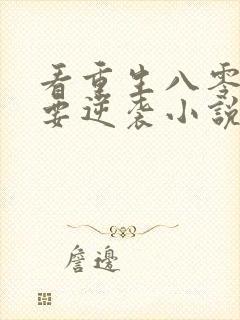 看重生八零
要逆袭小說
詹邊